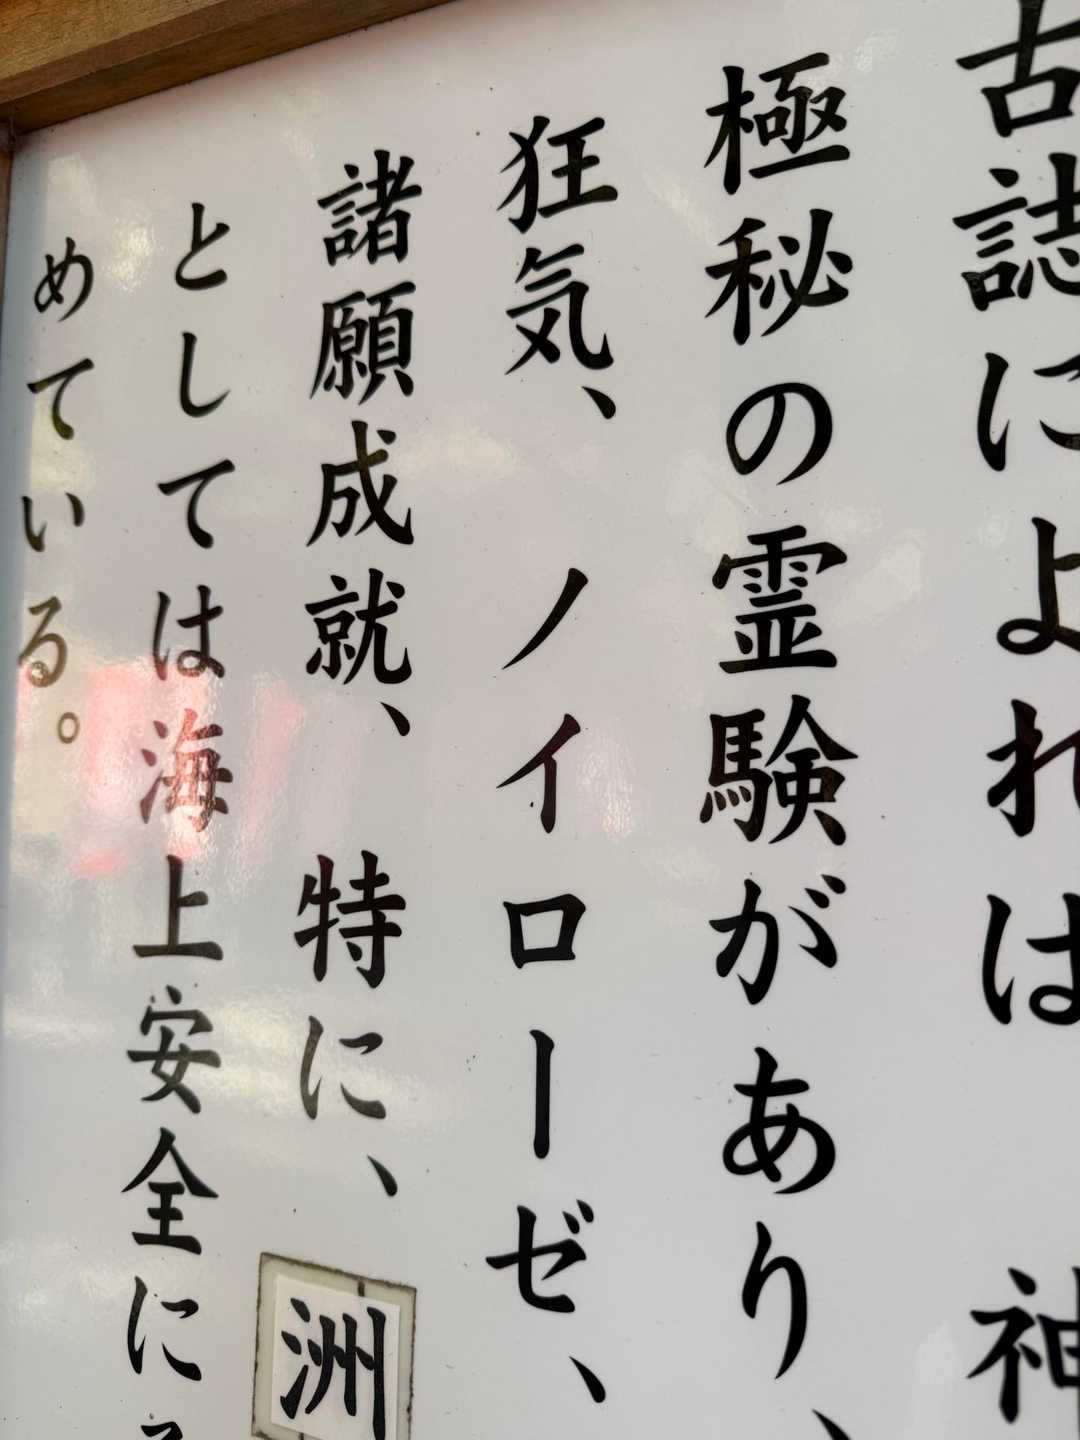 古誌によれば　神
極秘の霊験があり、
狂気、ノイローゼ、
諸願成就、特に、洲
としては海上安全に
めている。